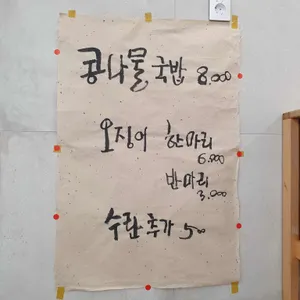 콩나물국밥 8.000
오징어 한마리
6.000
반마리
3.000
수란 추가 500